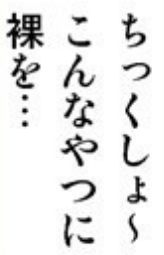 ちっくしょ～
こんなやつに
裸を…